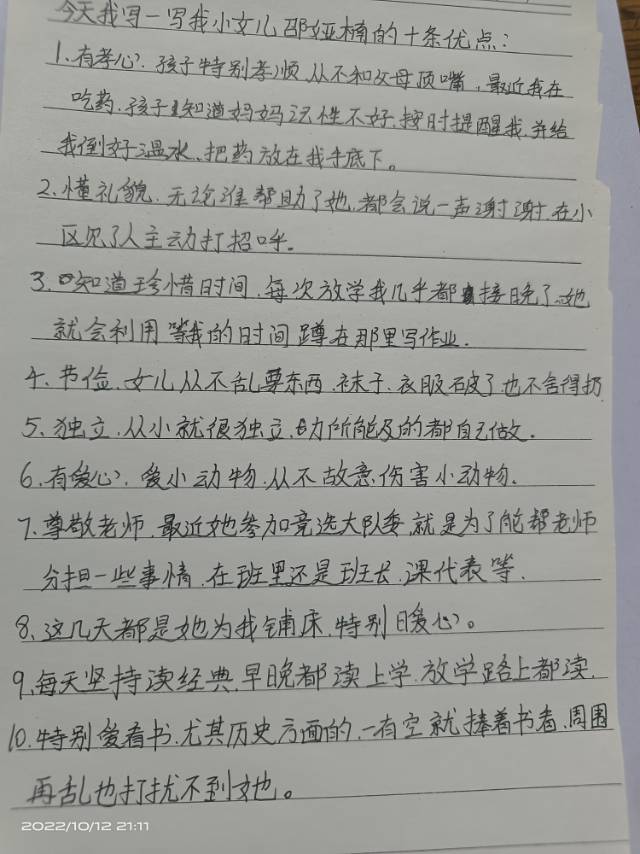 今天我写一写我小女儿邵娅楠的十条优点:
1.有孝心.孩子特别孝顺.从不和父母顶嘴,最近我在
吃药.孩子知道妈妈记性不好.按时提醒我.并给
我倒好温水、把药放在我手底下。
2.懂礼貌.无论谁帮助了她.都会说一声谢谢.在小
区见了人主动打招呼.
3.知道珍惜时间.每次放学我几乎都接晚了.她
就会利用等我的时间蹲在那里写作业.
4.节俭.女儿从不乱要东西.袜子.衣服破了也不舍得扔
5、独立.从小就很独立.力所能及的都自己做.
6.有爱心.爱小动物.从不故意伤害小动物.
7.尊敬老师.最近她参加竞选大队委就是为了能帮老师
分担一些事情.在班里还是班长.课代表等.
8、这几天都是她为我铺床.特别暖心。
9.每天坚持读经典.早晚都读上学.放学路上都读.
10.特别爱看书.尤其历史方面的.一有空就捧着书看.周围
再乱也打扰不到她。
2022/10/12 21:11